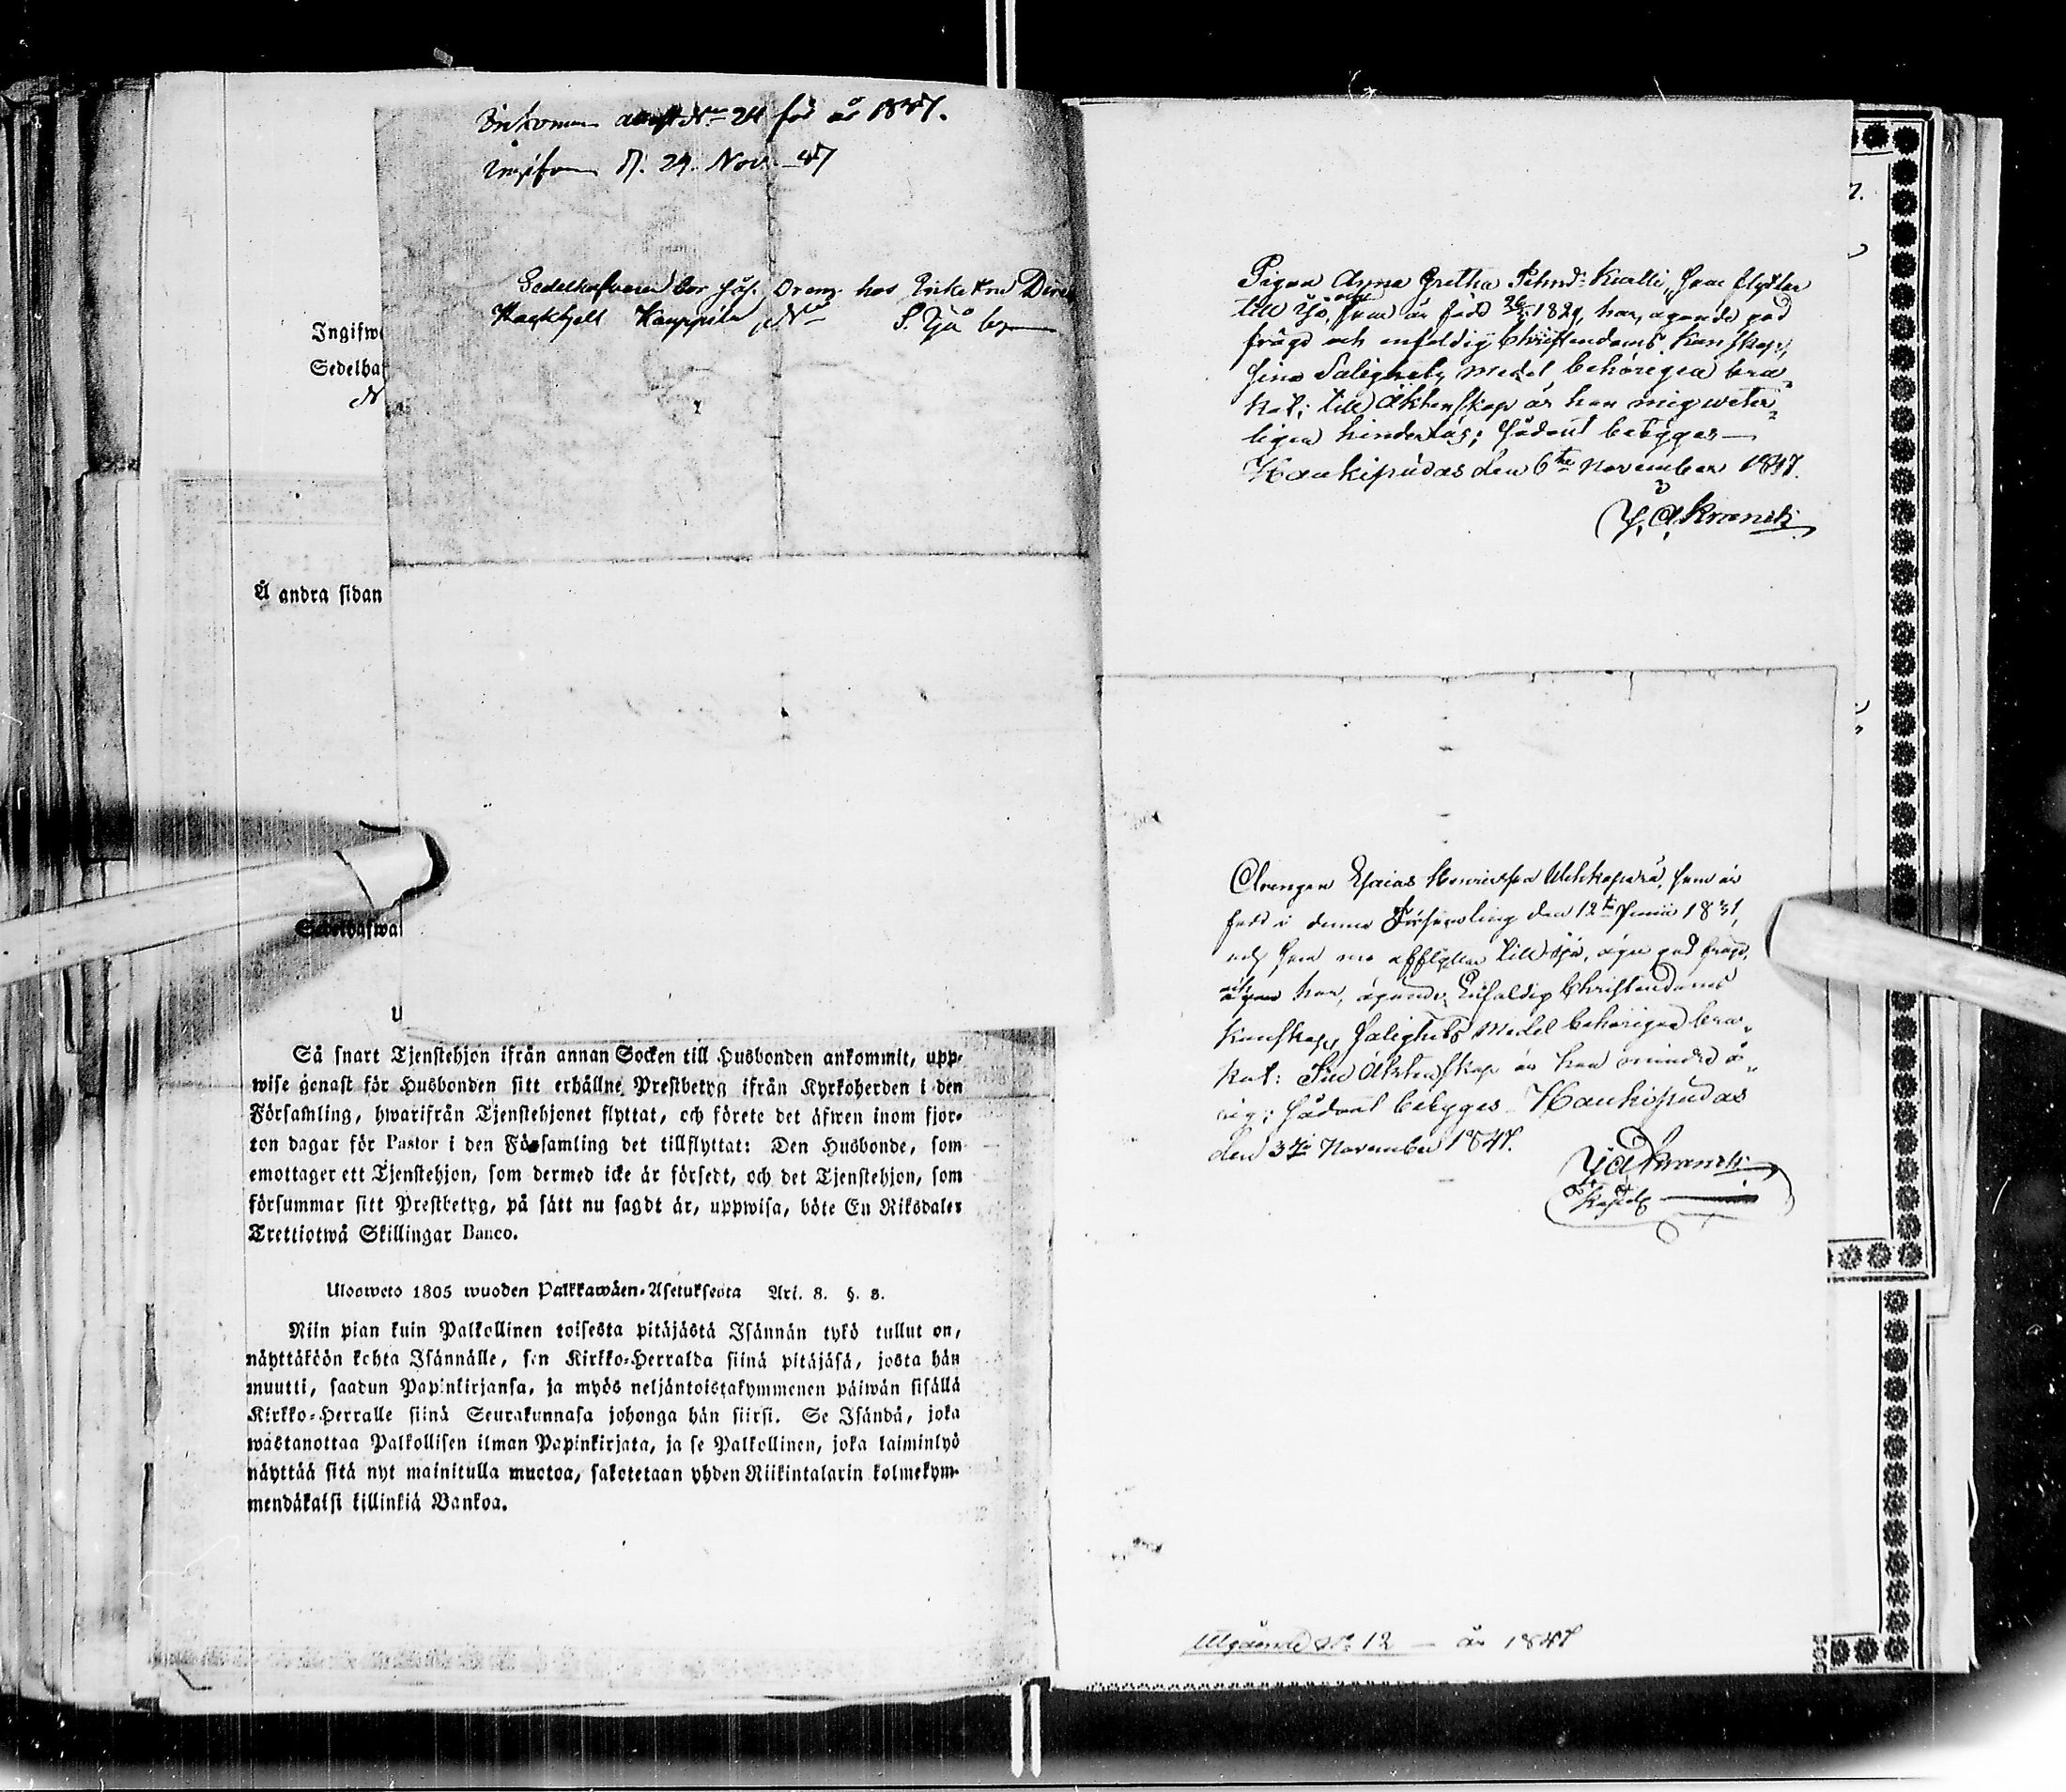 Inkommen attest No 24 för år 1847.
Ingifven d. 24. Nov. -47
Sedelhafvaren bor såsom Dreng hos Enkefru Direk
Kauppila No S. Ijå by
Ingifwe
Sedelhaf
N
Å andra sidan
Sedelhafwa
U
Så snart Tjenstehjon ifrån annan Socken till Husbonden ankommit, upp-
wise genast för Husbonden sitt erhållne Prestbetyg ifrån Kyrkoherden i den
Församling, hwarifrån Tjenstehjonet flyttat, och förete det äfwen inom fjor-
ton dagar för Pastor i den Församling det tillflyttat: Den Husbonde, som
emottager ett Tjenstehjon, som dermed icke är försedt, och det Tjenstehjon, som
försummar sitt Prestbetyg, på sätt nu sagdt är, uppwisa, böte En Riksdaler
Trettiotwå Skillingar Banco.
Ulosweto 1805 wuoden Palkkawäen-Asetuksesta Art. 8. §. 8.
Niin pian kuin Palkollinen toisesta pitäjästä Isännän tykö tullut on,
näyttäköön kohta Isännälle, sen Kirkko-Herralda siinä pitäjäsä, josta hän
muutti, saadun Papinkirjansa, ja myös neljäntoistakymmenen päiwän sisällä
Kirkko-Herralle siinä Seurakunnasa johonga hän siirsi. Se Isändä, joka
wastanottaa Palkollisen ilman Papinkirjata, ja se Palkollinen, joka laiminlyö
näyttää sitä nyt mainitulla muotoa, sakotetaan yhden Riikintalarin kolmekym-
mendäkaksi killinkiä Bankoa.
Pigan Anna Gretha Kralli, som flytter
till Ijo, och som är född 26/ 1829, har, ägande god
frägd och enfaldig Christendoms kunskap,
sina Salighets medel behörigen bru-
kat; till Äktenskap är hon mig veter-
ligen hinderlös; sådant betygges
Haukipudas den 6te November 1847.
J. A. Kranck
Drengen Esaias Henricsson, som är
född i denna Församling den 12te Junii 1831,
och som nu afflytter till Ijo, äger god frägd,
och har, ägande Enfaldig Christendoms
kunskap, Salighets medel behörigen bru-
kat: Till Äktenskap är han mindre å-
rig; sådant betygges Haukipudas
den 3die November 1847.
J A Kranck
Utgående No 12 – år 1847